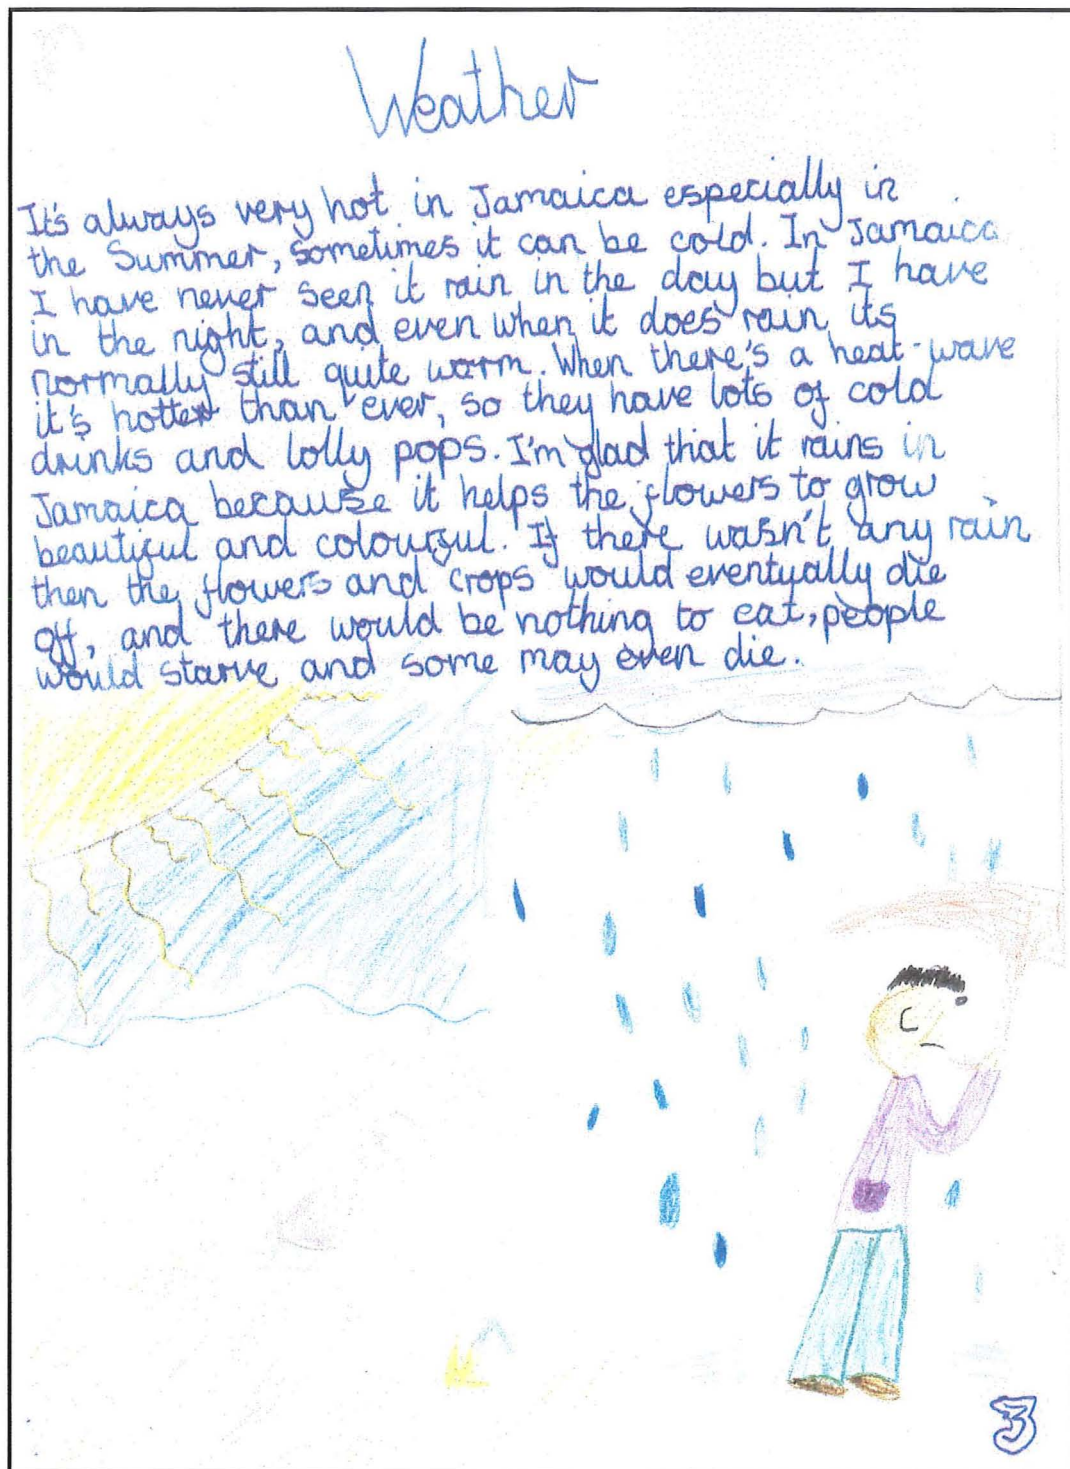 Weather
It's always very hot in Jamaica especially in
the Summer, sometimes it can be cold. In Jamaica
I have never seen it rain in the day but I have
in the night, and even when it does rain its
normally still quite warm. When there's a heat-wave
it's hotter than ever, so they have lots of cold
drinks and lolly pops. I'm glad that it rains in
Jamaica because it helps the flowers to grow
beautiful and colourful. If there wasn't any rain
then the flowers and crops would eventually die
off, and there would be nothing to eat, people
would starve and some may even die.
3